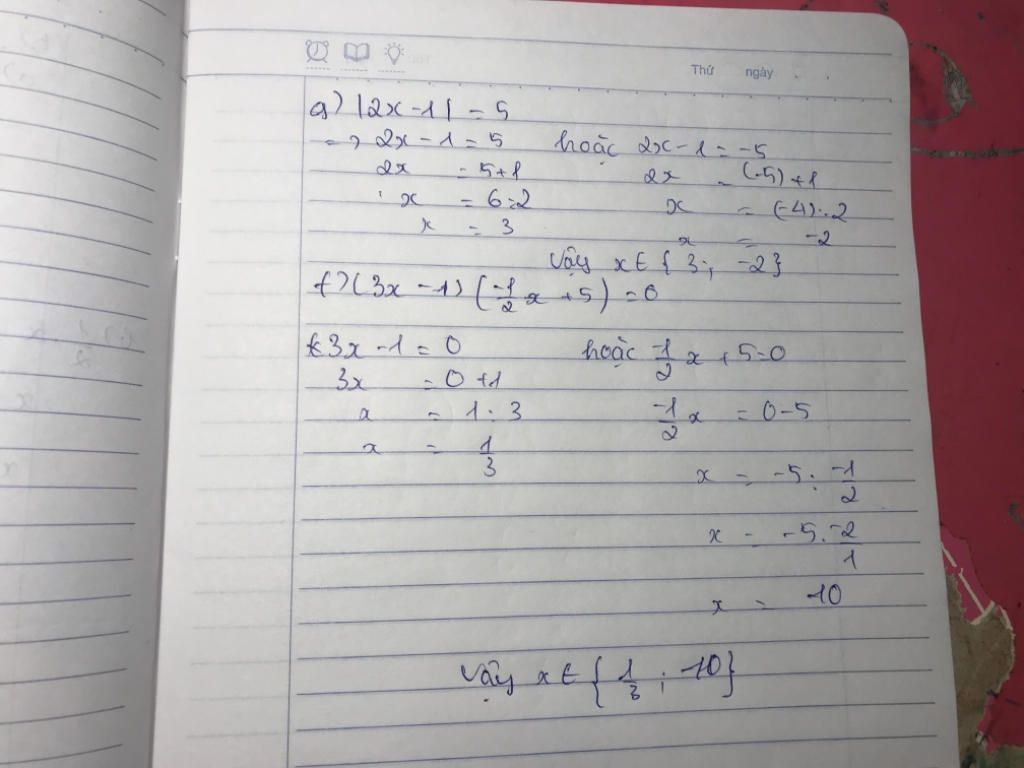 Thứ ngày
g) |2x - 1| = 5
=> 2x - 1 = 5 hoặc 2x - 1 = -5
2x = 5+1 2x = (-5) + 1
x = 6:2 x = (-4) : 2
x = 3 x = -2
Vậy x ∈ { 3 ; -2 }
f) (3x - 1) (-1/2 x + 5) = 0
3x - 1 = 0 hoặc -1/2 x + 5 = 0
3x = 0 + 1
x = 1 : 3 -1/2 x = 0 - 5
x = 1/3
x = -5 : -1/2
x = -5 . -2/1
x = 10
Vậy x ∈ { 1/3 ; 10 }